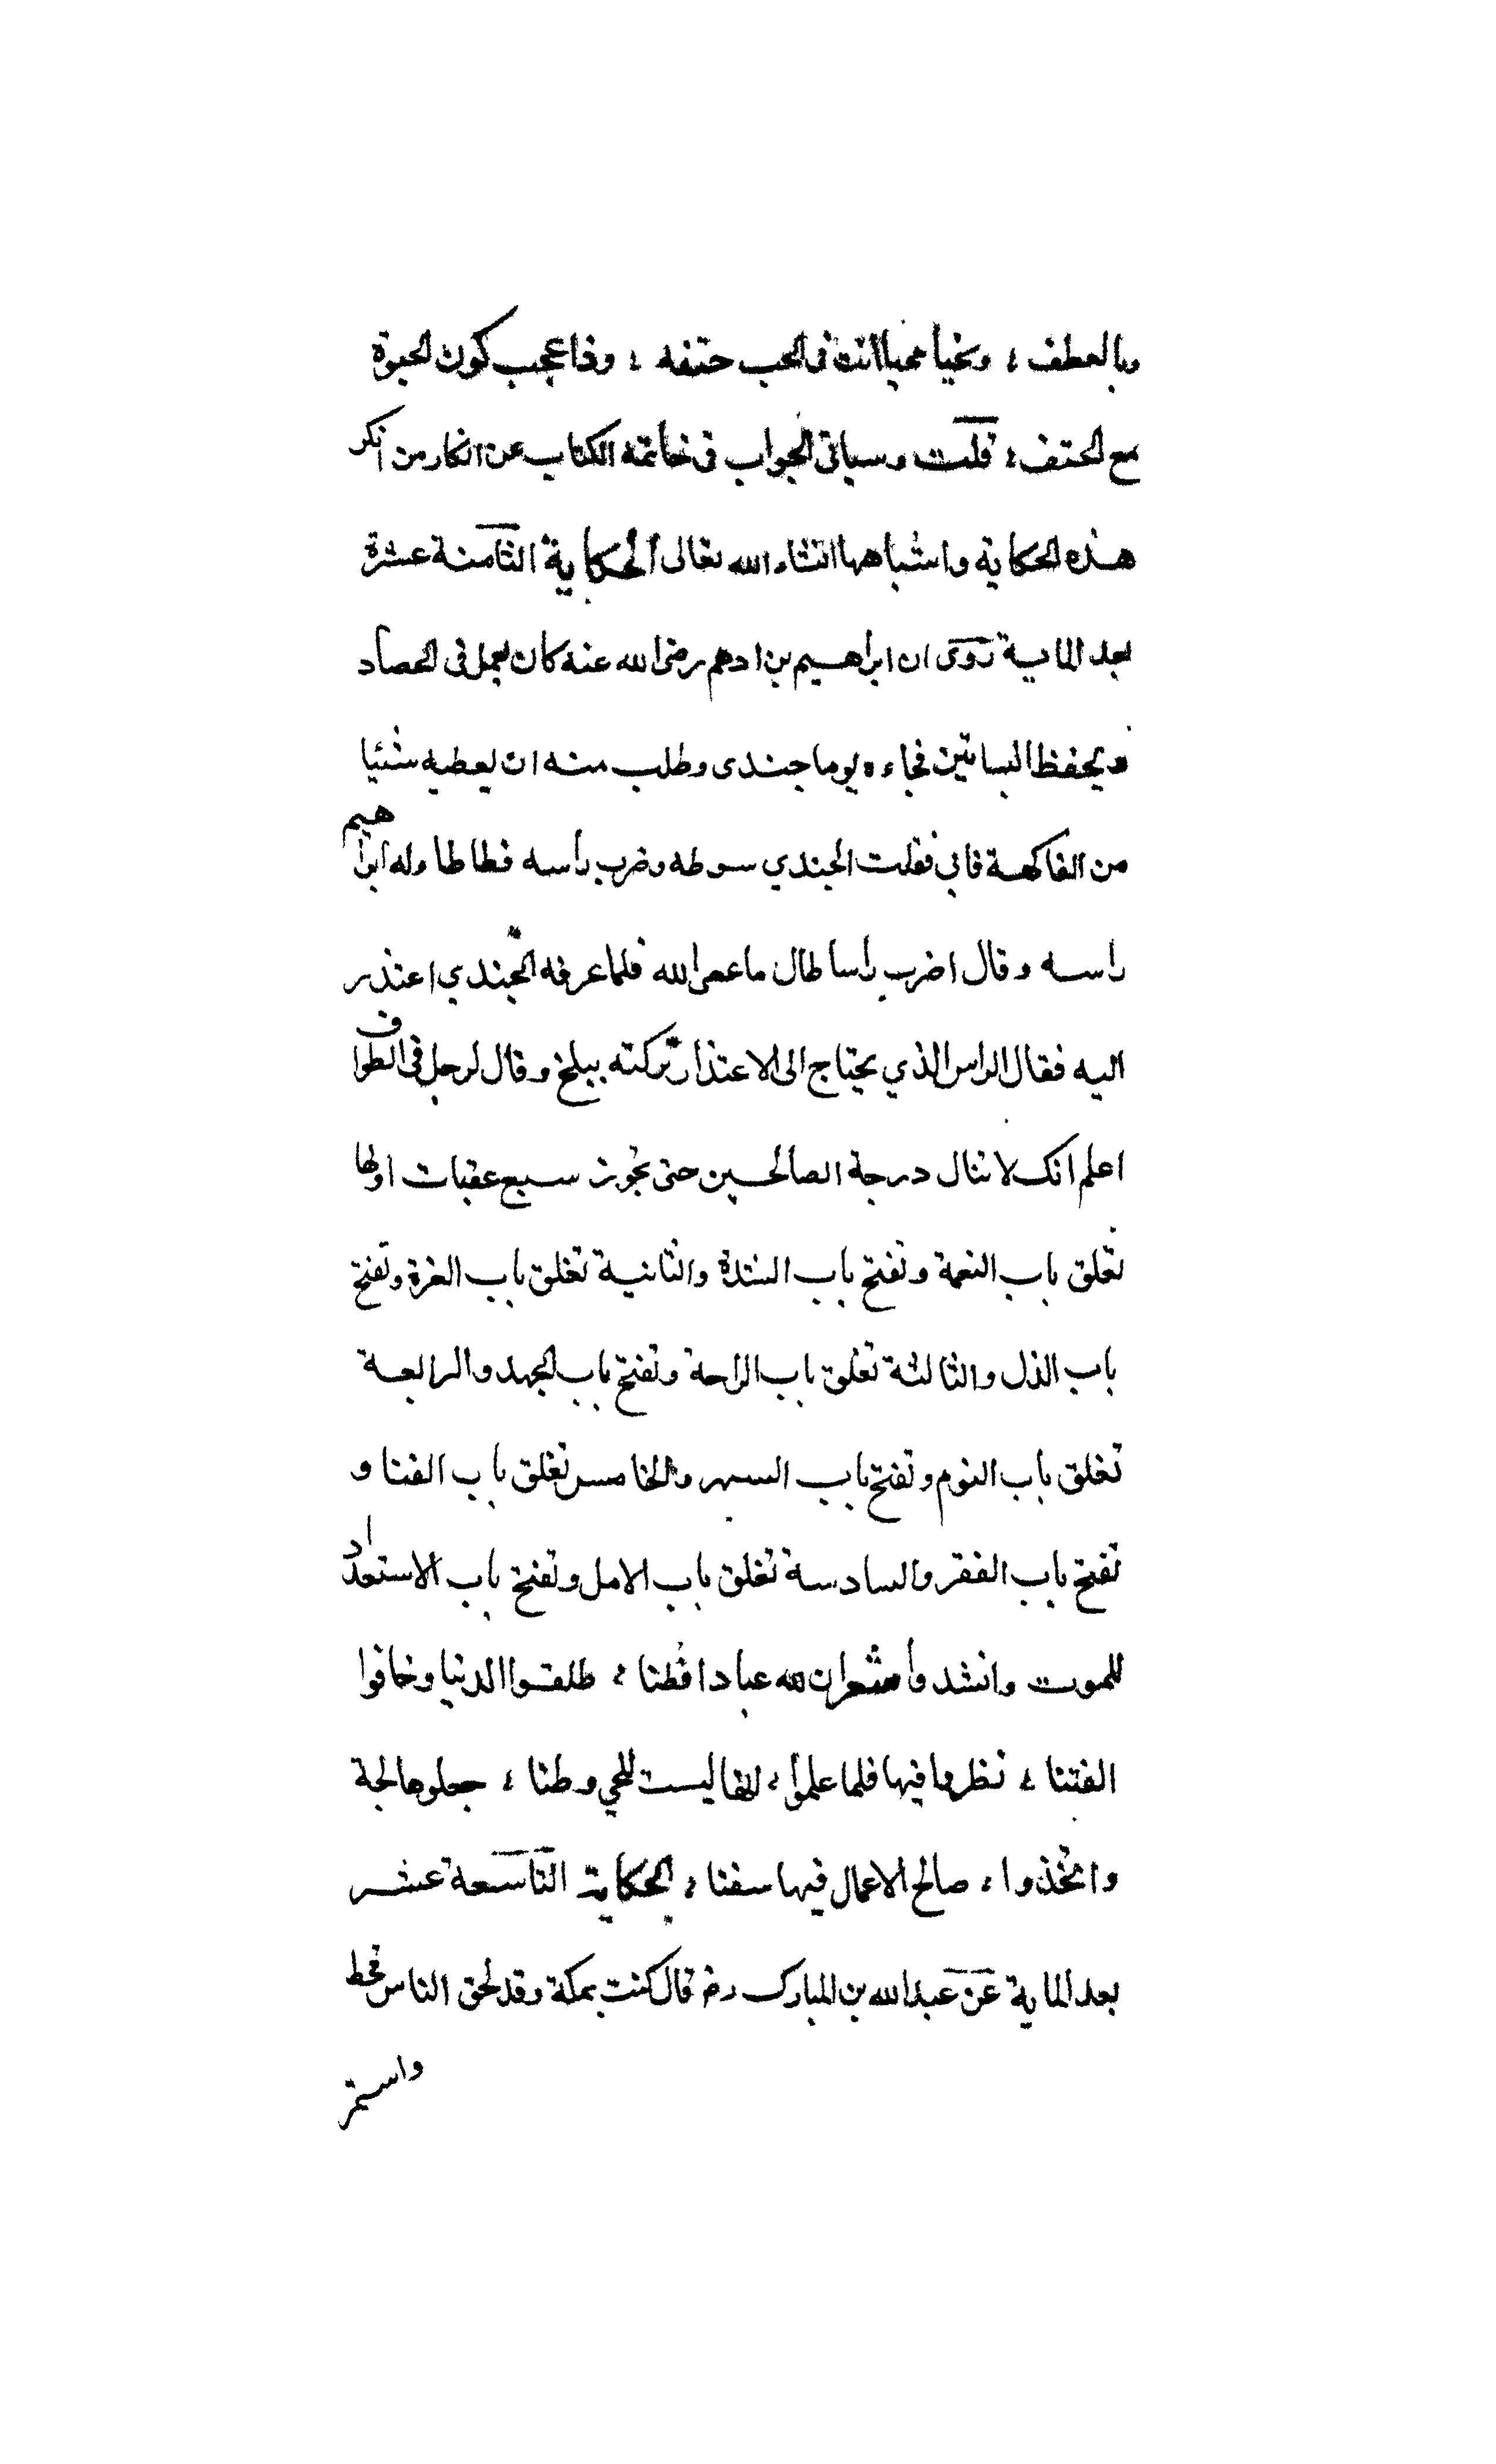 وبالعطف ، وتحيا محبا انت في الحب حتفه ، وذا عجب كون الحيوة
مع الحتف ، قلت وسياتي الجواب في خاتمة الكتاب عن انكار من انكر
هذه الحكاية واشباهها انشاء الله تعالى الحكاية الثامنة عشرة
بعد الماية روى ان ابراهيم بن ادهم رضي الله عنه كان يعمل في الحصاد
ويحفظ البساتين فجاءه يوما جندى وطلب منه ان يعطيه شئيا
من الفاكهة فابي فقلت الجندي سوطه وضرب رأسه فطاطا وله ابراهيم
راسه وقال اضرب راسا طال ما عصى الله فلما عرفه الجندي اعتذر
اليه فقال الراس الذي يحتاج الى الاعتذار تركته ببلخ وقال لرجل في الطواف
اعلم انك لا تنال درجة الصالحين حتى تجوز سبع عقبات اولها
تغلق باب النعمة وتفتح باب الشدة والثانية تغلق باب العزة وتفتح
باب الذل والثالثة تغلق باب الراحة وتفتح باب الجهد والرابعة
تغلق باب النوم وتفتح باب السهر والخامس تغلق باب الغنا و
تفتح باب الفقر والسادسة تغلق باب الامل وتفتح باب الاستعداد
للموت وانشدوا شعر ان لله عبادا فطنا ، طلقوا الدنيا وخافوا
الفتنا ، نظروا فيها فلما علموا ، انها ليست لحي وطنا ، جعلوها لجة
واتخذوا ، صالح الاعمال فيها سفنا ، الحكاية التاسعة عشر
بعد الماية عن عبدالله بن المبارك رضـ قال كنت بمكة وقد لحق الناس قحط
واستمر